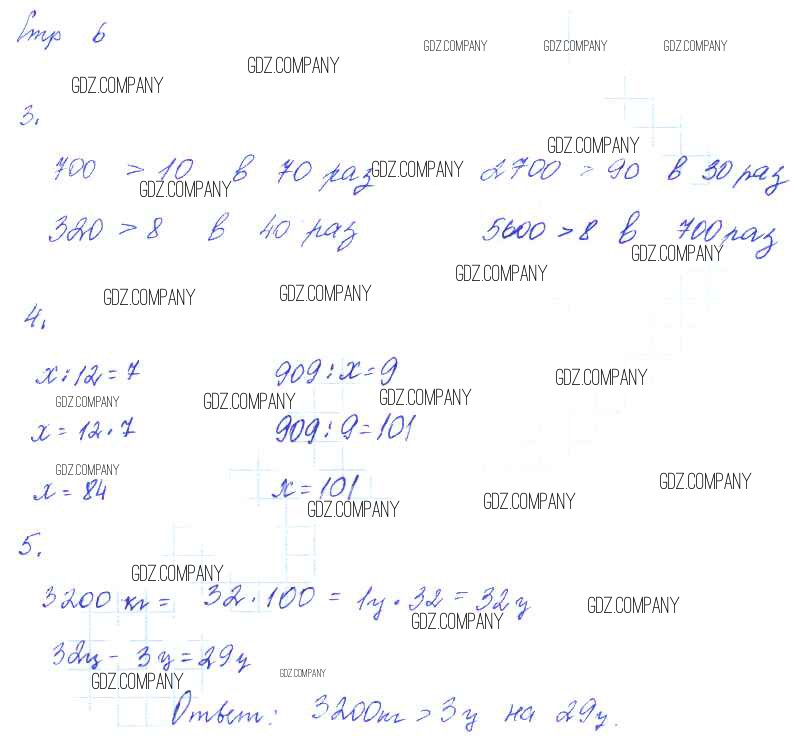 Стр 6
GDZ.COMPANY GDZ.COMPANY GDZ.COMPANY
GDZ.COMPANY
GDZ.COMPANY
3.
GDZ.COMPANY
700 > 10 в 70 раз GDZ.COMPANY 2700 > 90 в 30 раз
GDZ.COMPANY
320 > 8 в 40 раз 5600 > 8 в 700 раз
GDZ.COMPANY
GDZ.COMPANY
GDZ.COMPANY GDZ.COMPANY
4.
x : 12 = 7 909 : x = 9
GDZ.COMPANY
GDZ.COMPANY GDZ.COMPANY GDZ.COMPANY
x = 12 · 7 909 : 9 = 101
GDZ.COMPANY
x = 84 x = 101
GDZ.COMPANY
GDZ.COMPANY GDZ.COMPANY
5.
GDZ.COMPANY
3200 кг = 32 · 100 = 1ц · 32 = 32ц
GDZ.COMPANY
GDZ.COMPANY
32ц - 3ц = 29ц
GDZ.COMPANY GDZ.COMPANY
Ответ: 3200кг > 3ц на 29ц.